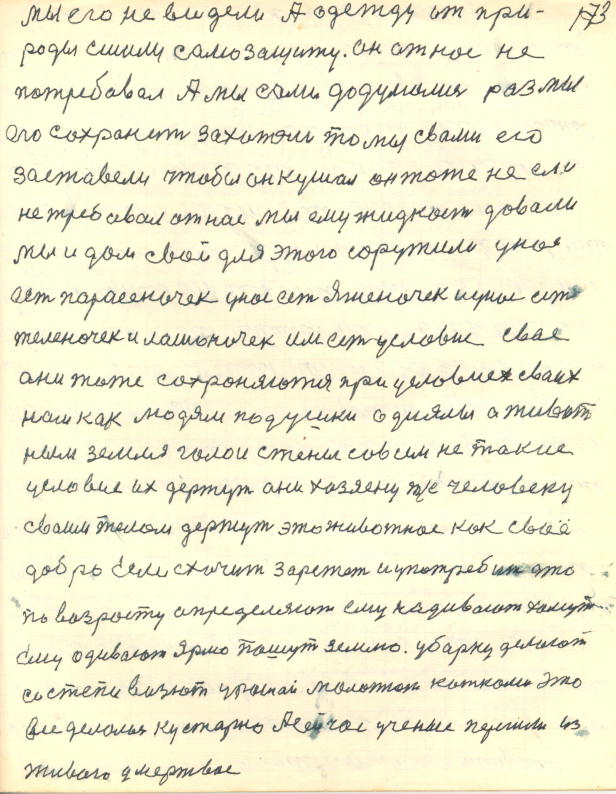 мы его не видели А одежду от при- 173
роды сшили самозащиту. он от нас не
потребовал А мы сами додумались раз мы
его сохранит захотели то мы свами его
заставели чтобы он кушал он тоже не ел и
не требовал от нас мы ему жидкост довали
мы и дом свой для этого соружили у нас
ест парасеночек у нас ест ягненочек и у нас ест
теленочек и лашоночек им ест условие свае
ани тоже сохроняются при условиех своих
нам как людям подушки одиялы а живот
ным земля голои стены совсем не такие
условие их держут ани хозяену же человеку
своим телом держут это животное как своё
добро если схочит зарежет и употребит это
по возрасту определяют ему надивают хомут
ему одивают ярмо пашут землю. убарку делают
со степи визют урожай молотют катками это
все делолся кустарно А сейчас учение перешли из
живого в мертвое